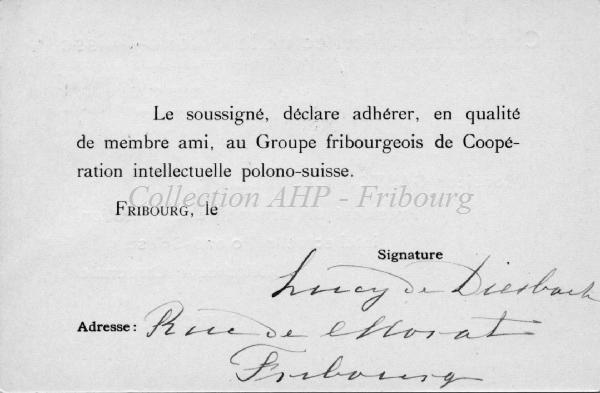 Le soussigné, déclare adhérer, en qualité
de membre ami, au Groupe fribourgeois de Coopé-
ration intellectuelle polono-suisse.
Collection AHP - Fribourg
FRIBOURG, le
Signature
Lucy de Diesbach
Adresse: Rue de Morat
Fribourg